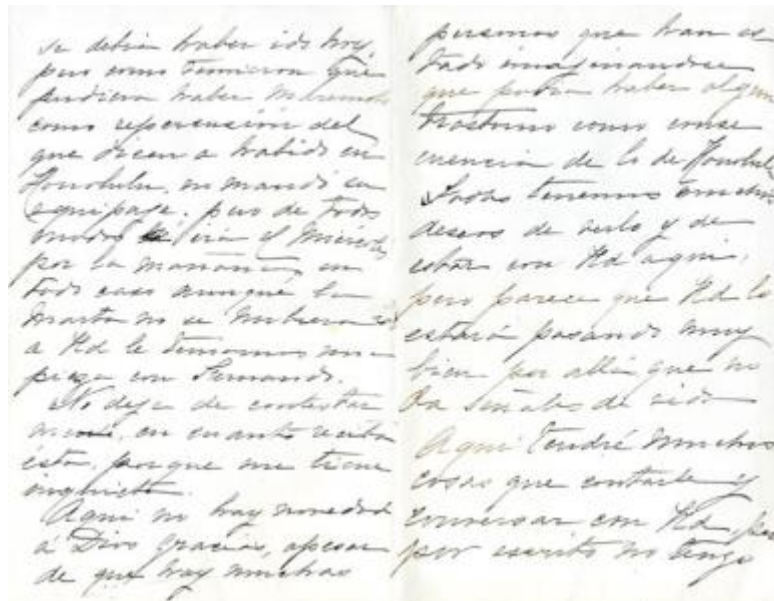 se debia haber ido hoy,
pero como temieron que
pudiera haber maremoto
como repercusión del
que dicen a habido en
Honolulu, no mandó su
equipage, pero de todo
modos se irá el Miércoles
por la mañana, en
todo caso aunque la
Marta no se hubiera ido
a Ud le tenemos una
pieza con Fernando.
No deje de contestar
en cuanto reciba
esta, porque me tiene
inquieta.
Aqui no hay novedad
a Dios gracias, apesar
de que hay muchas
personas que han es
tado imaginandose
que podia haber algun
trastorno como conse
cuencia de lo de Honolulu
Todos tenemos muchos
deseos de verlo y de
estar con Ud aqui,
pero parece que Ud lo
estará pasando muy
bien por allá que no
da señales de vida
Aqui tendré muchas
cosas que contarle y
conversar con Ud, pero
por escrito no tengo